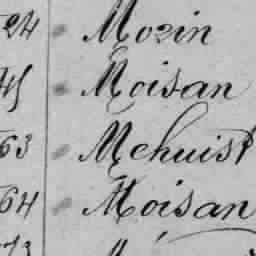 24 Mozin
Moisan
63 Mehuist
64 Moisan
73